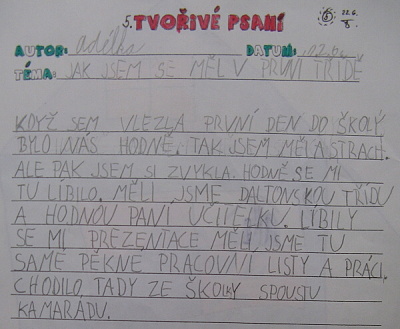 5. TVOŘIVÉ PSANÍ
22.6.
8
AUTOR: adélka DATUM:
TÉMA: JAK JSEM SE MĚL V PRVNÍ TŘÍDĚ
KDYŽ SEM VLEZLA PRVNÍ DEN DO ŠKOLY
BYLO NÁS HODNĚ. TAK JSEM MĚLA STRACH.
ALE PAK JSEM SI ZVYKLA. HODNĚ SE MI
TU LÍBILO. MĚLI JSME DALTONSKOU TŘÍDU
A HODNOU PANÍ UČITELKU. LÍBILY
SE MI PREZENTACE MĚLI JSME TU
SAMÉ PĚKNÉ PRACOVNÍ LISTY A PRÁCI.
CHODILO TADY ZE ŠKOLKY SPOUSTU
KAMARÁDU.